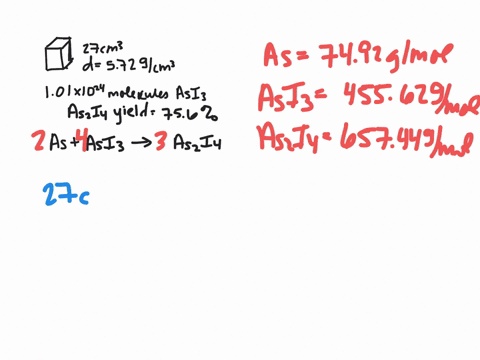 27cm³
d=5.72g/cm³
1.01x10²⁴ molecules AsI3
As2I4 yield=75.6%
2As+4AsI3→3 As2I4
As=74.92g/mol
AsI3=455.62g/mol
As2I4=657.44g/mol
27c